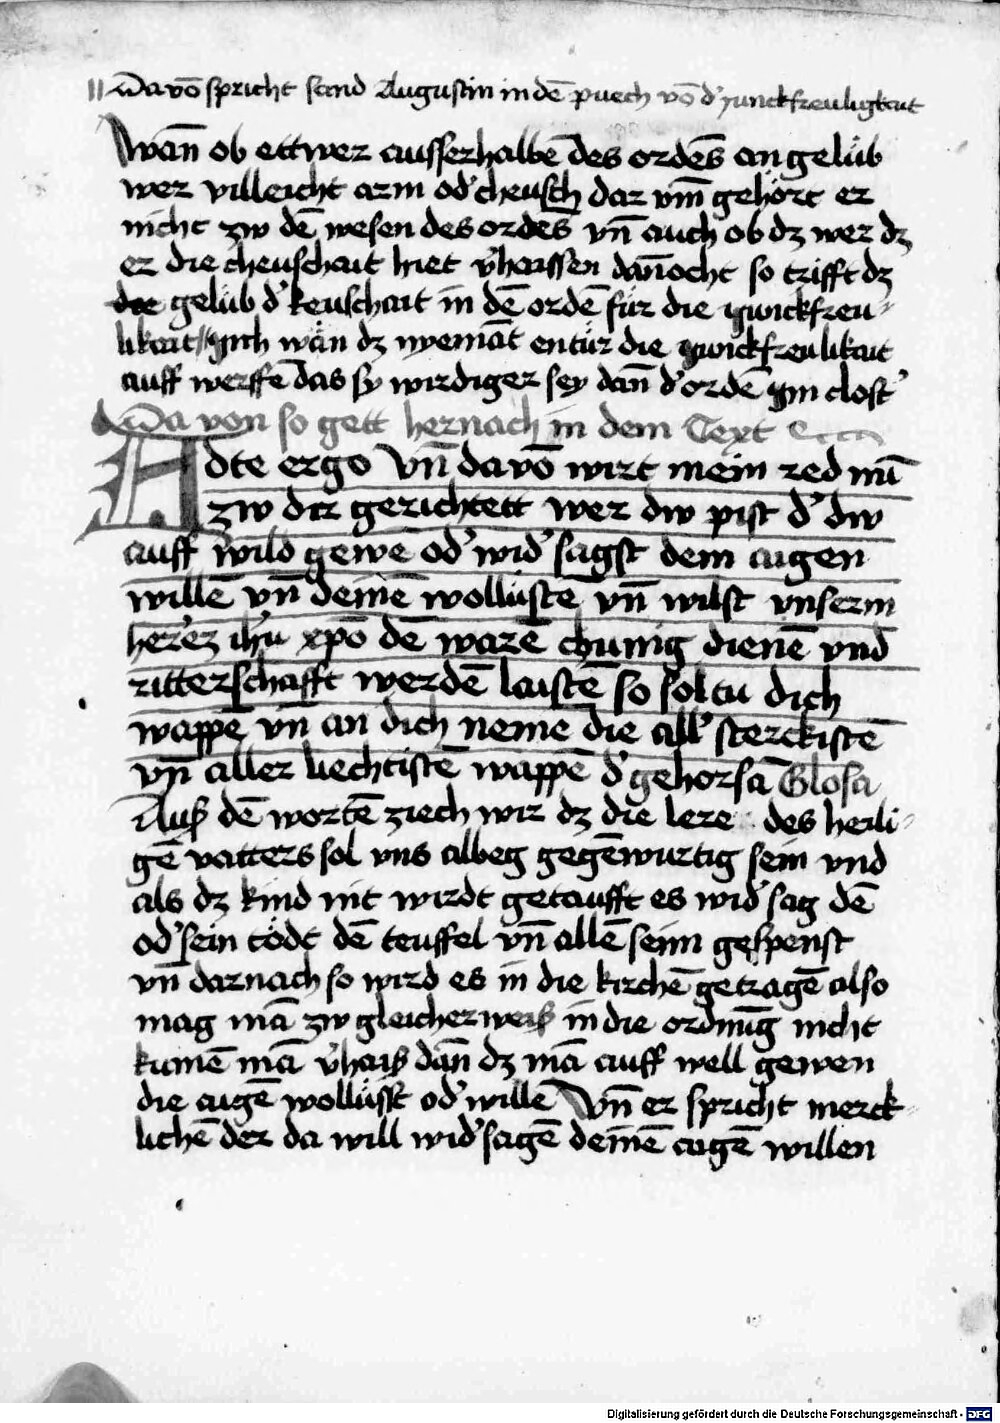 || Da võ spricht sand Augustin in dẽ puech võ d' junckfreuligkait
Wan̄ ob ettwer ausserhalbẽ des ordẽs an gelüb
wer villeicht arm od' cheusch dar vm̄ gehört er
nicht zw dẽ wesen des ordẽs vn̄ auch ob dz wer dz
er die cheuschait hiet v'haissen dan̄ocht so trifft dz
gelüb d' keuschait in dẽ ordẽ für die junckfreu-
likait // Ich wän dz nyemãt entür die junckfreulikait
auff werffẽ das sy wirdiger sey dan̄ d' ordẽ Im clost'
Da von so gett hernach in dem Text
Adte ergo Vn̄ da võ wirt mein red nũ
zw dir gerichtett wer dw pist d' dw
auff wild gewẽ od' wid' sagst dem aigen
willẽ vn̄ deinẽ wollüstẽ vn̄ wilst vnserm
herrẽ ihũ xpõ dẽ warẽ chunig dienẽ vnd
ritterschafft werdẽ laistẽ so soltu dich
wappẽ vn̄ an dich nemẽ die all' sterckistẽ
vn̄ aller liechtistẽ wappẽ d' gehorsã Glosa
Auß dẽ wortẽ ziech wir dz die lere des heili-
gẽ vatters sol vns albeg gegẽwurtig sein vnd
als dz kind nit wirdt getaufft es wid' sag dẽ
od' sein tödt dẽ teuffel vn̄ allẽ seim gespenst
vn̄ darnach so wird es in die kirchẽ getragẽ also
mag mã zw gleicher weiß in die ordnũg nicht
kumẽ mã v'haiß dan̄ dz mã auff well gewen
die aigẽ wollüst od' willẽ Vn̄ er spricht merck-
lichẽ der da will wid' sagẽ deinẽ aigẽ willen
Digitalisierung gefördert durch die Deutsche Forschungsgemeinschaft - DFG